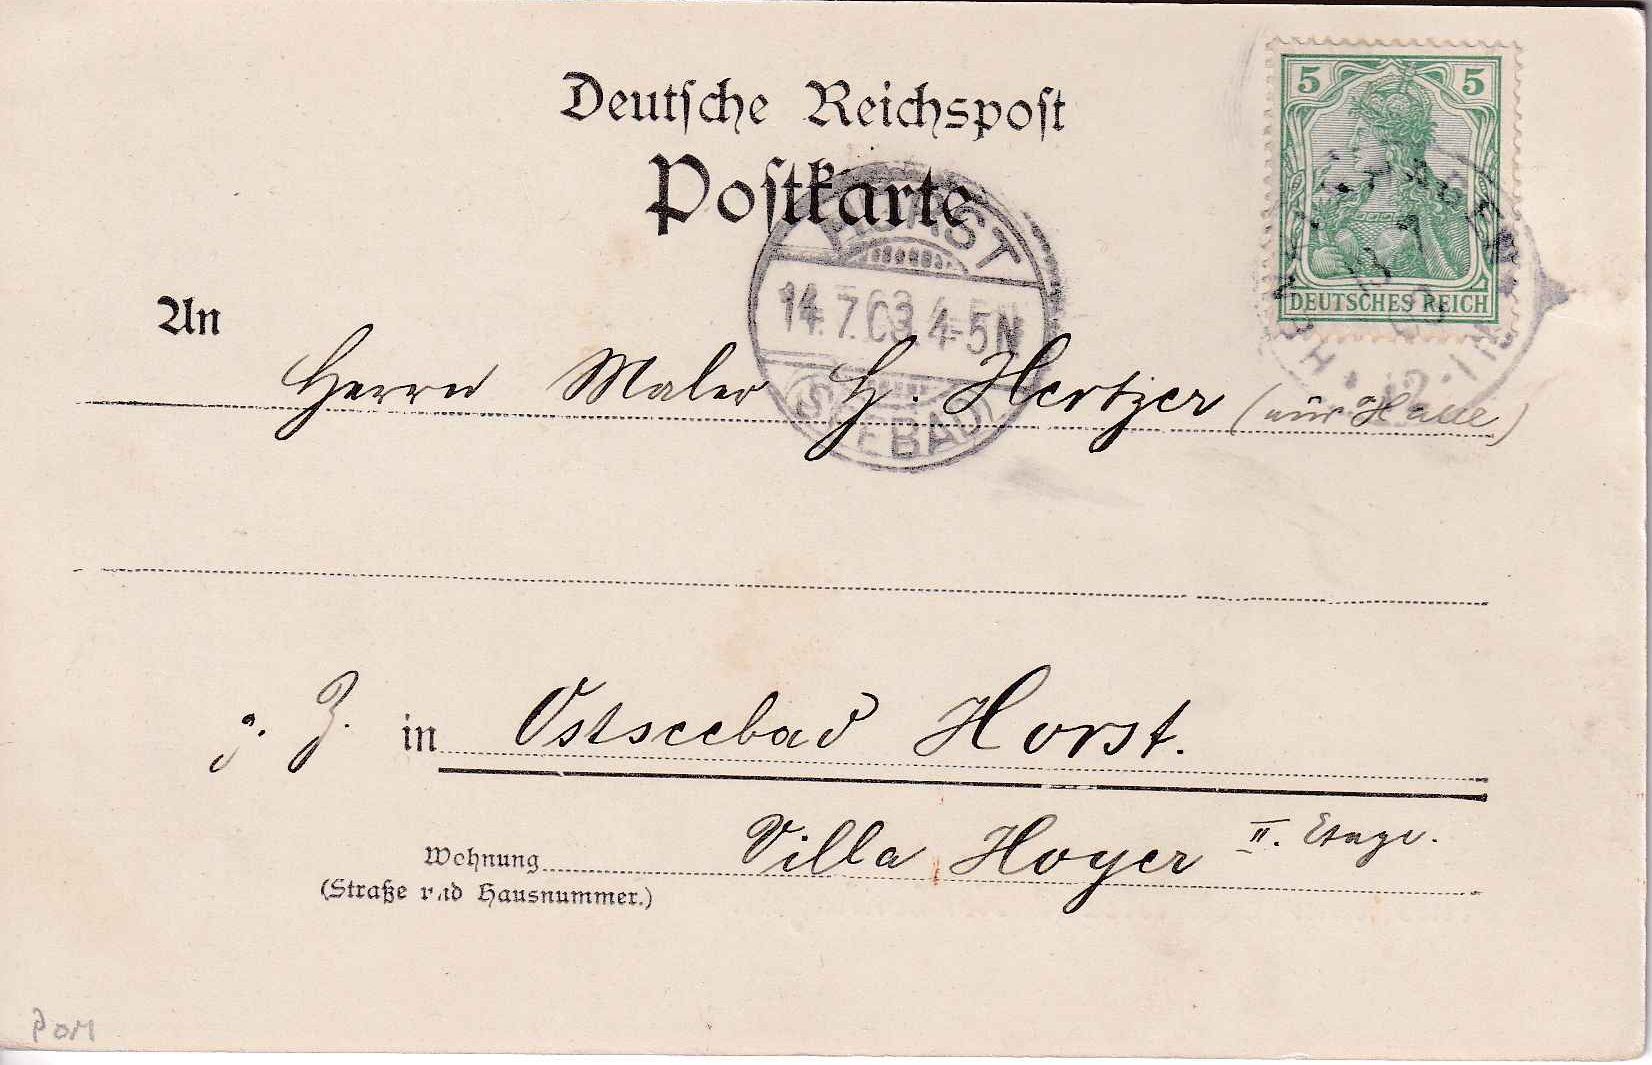 Deutsche Reichspost
Postkarte
5 5
DEUTSCHES REICH
HORST
14.7.03 4-5N
(SEEBAD)
An
Herrn Maler H. Hertzer (aus Halle)
z. Z. in Ostseebad Horst.
Villa Hoyer II. Etage.
Wohnung
(Straße und Hausnummer.)
POM